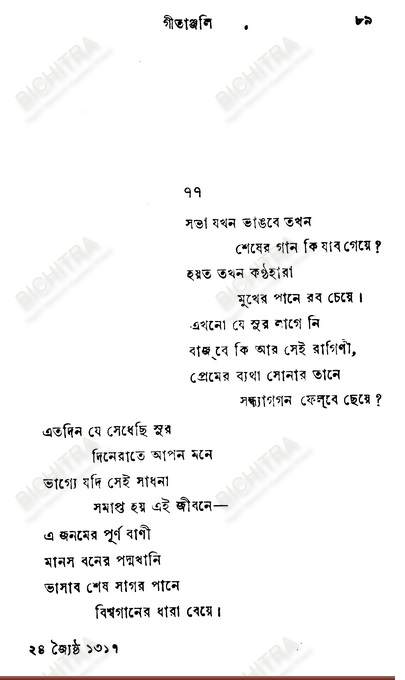 গীতাঞ্জলি ৮৯
৭৭
সভা যখন ভাঙবে তখন
শেষের গান কি যাব গেয়ে?
হয়ত তখন কণ্ঠহারা
মুখের পানে রব চেয়ে।
এখনো যে সুর লাগে নি
বাজ্‌বে কি আর সেই রাগিণী,
প্রেমের ব্যথা সোনার তানে
সন্ধ্যাগগন ফেল্‌বে ছেয়ে?
এতদিন যে সেধেছি সুর
দিনেরাতে আপন মনে
ভাগ্যে যদি সেই সাধনা
সমাপ্ত হয় এই জীবনে—
এ জনমের পূর্ণ বাণী
মানস বনের পদ্মখানি
ভাসাব শেষ সাগর পানে
বিশ্বগানের ধারা বেয়ে।
২৪ জ্যৈষ্ঠ ১৩১৭
BICHITRA
BICHITRA
BICHITRA
BICHITRA
BICHITRA
BICHITRA
BICHITRA
BICHITRA